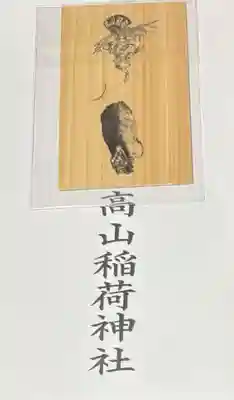 高山稲荷神社